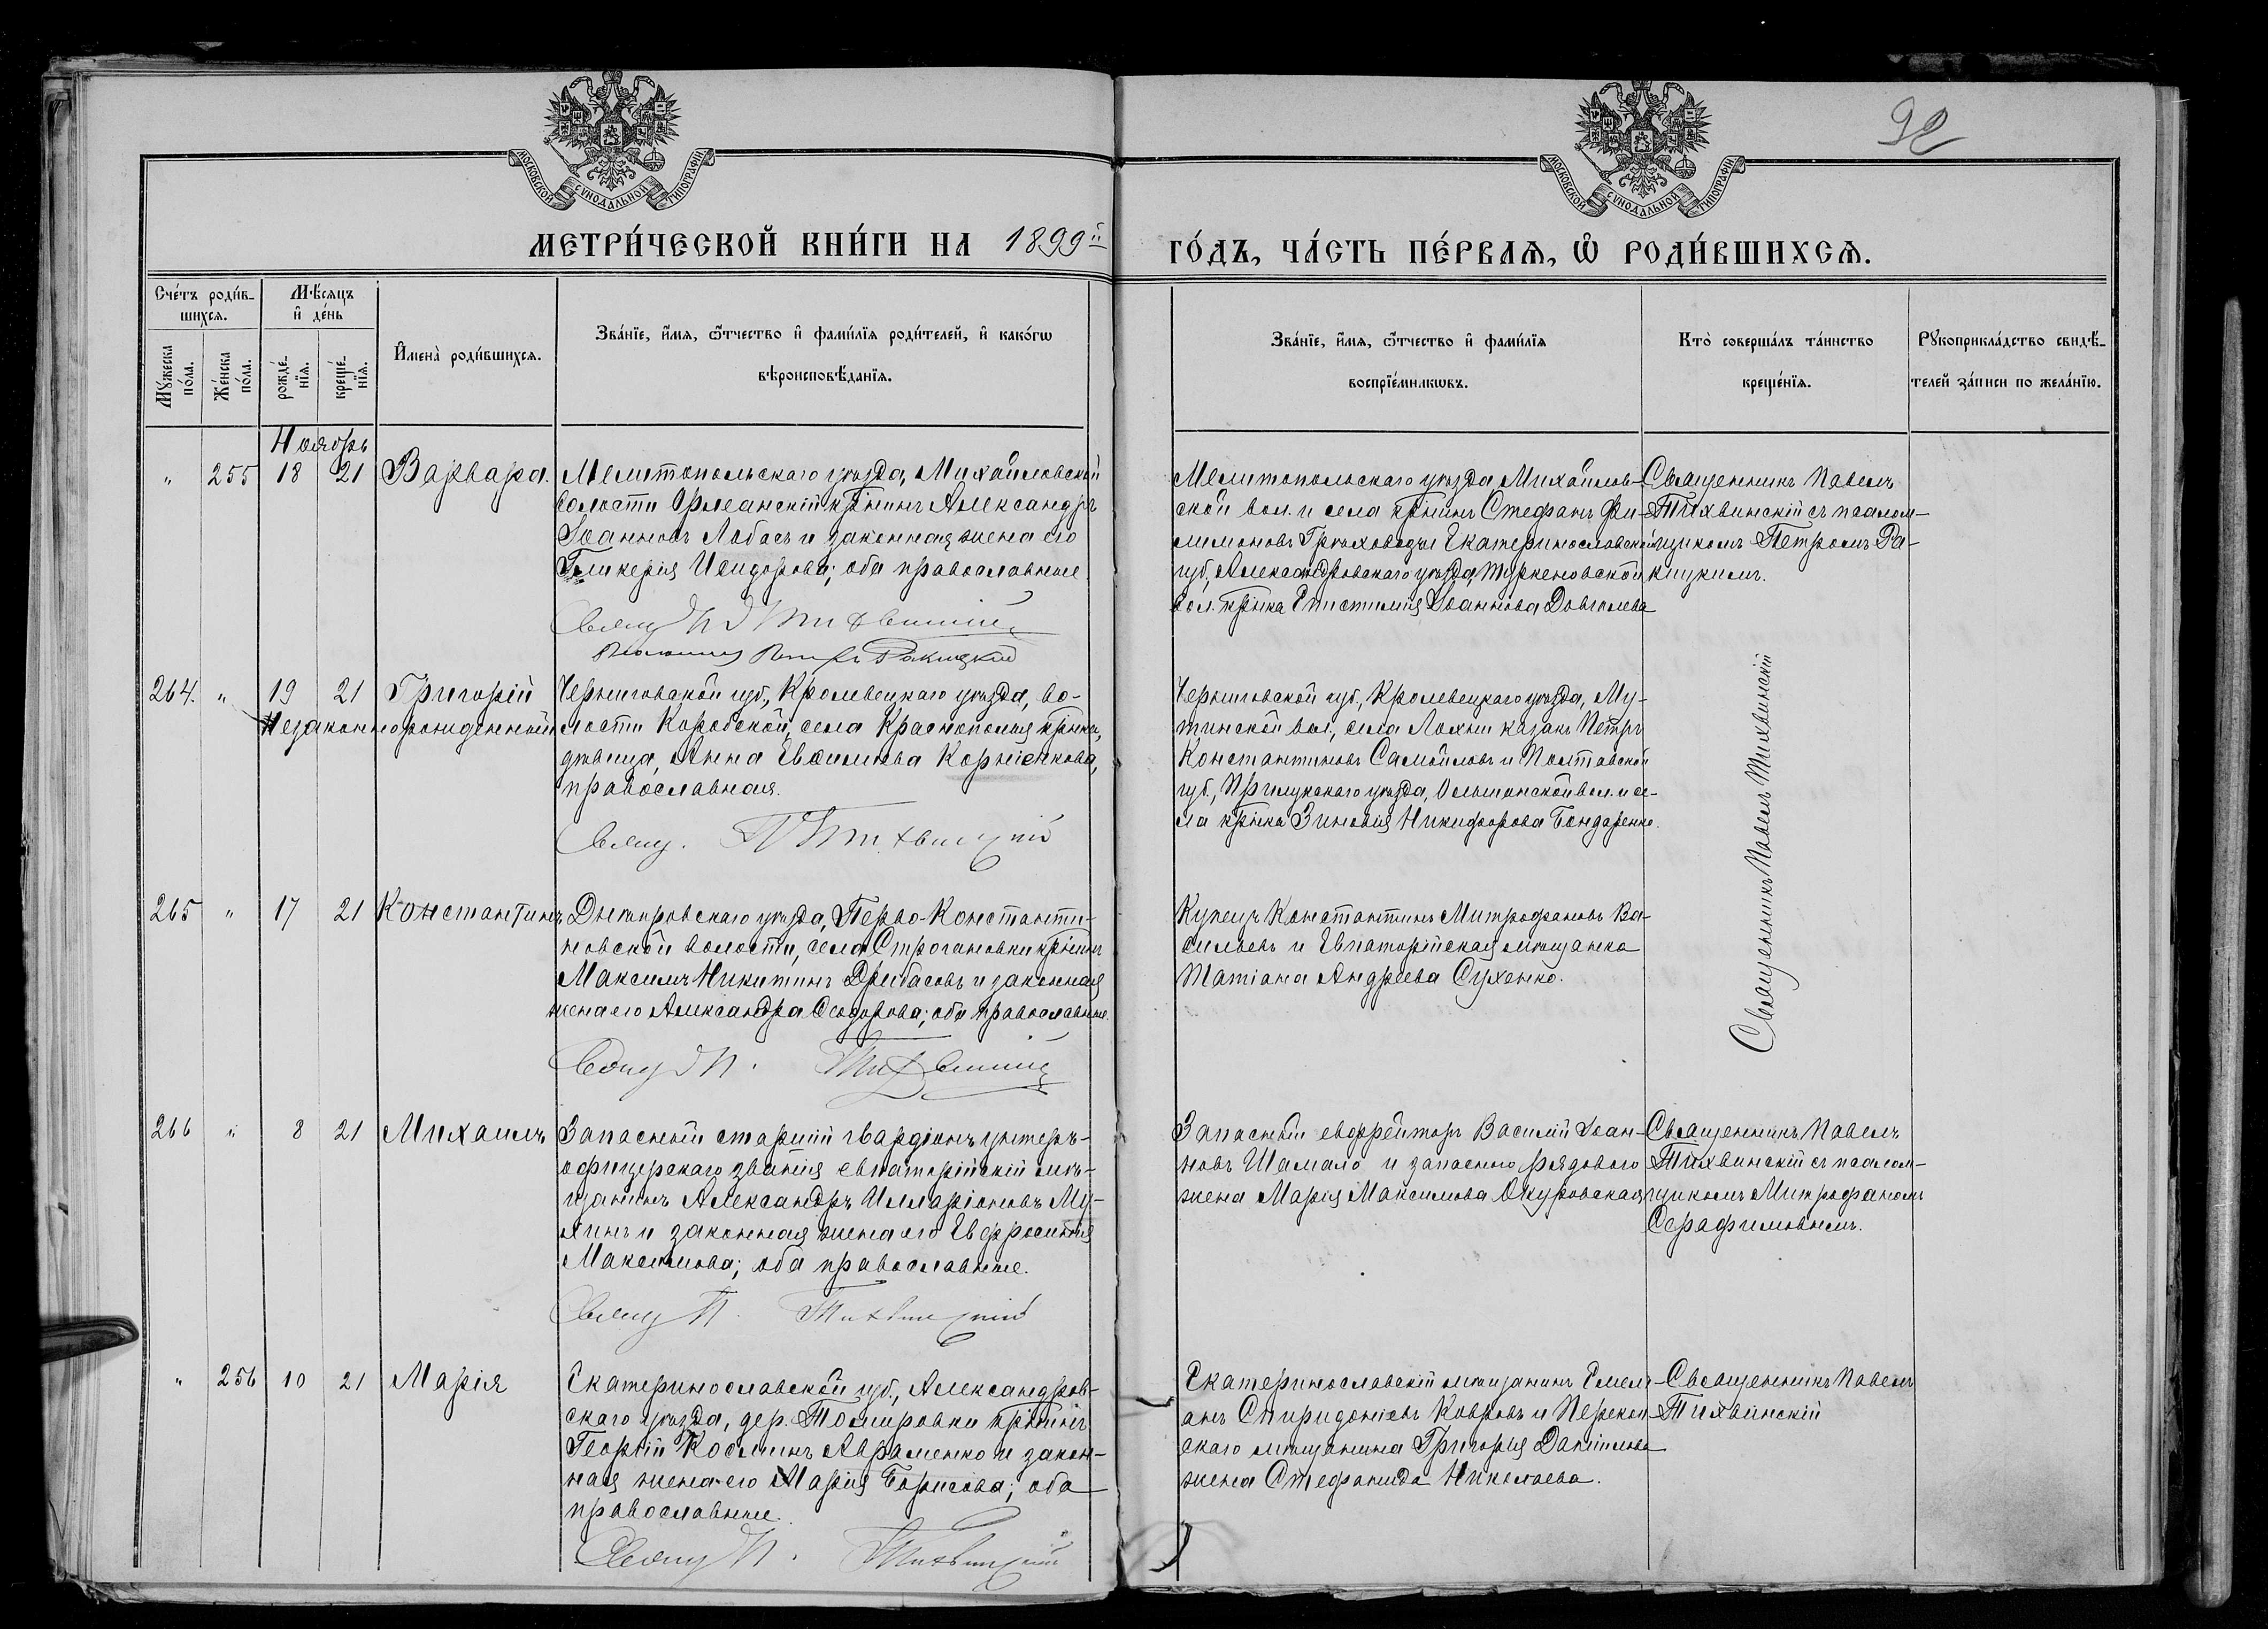 92
МОСКОВСКОЙ СѴНОДАЛЬНОЙ ТИПОГРАФІИ
МОСКОВСКОЙ СѴНОДАЛЬНОЙ ТИПОГРАФІИ
МЕТРИ́ЧЕСКОЙ КНИ́ГИ НА 1899й
ГО́ДЪ, ЧА́СТЬ ПЕ́РВАѦ, Ѽ РОДИ́ВШИХСѦ.
Сче́тъ роди́в-
шихсѧ.
Мꙋжеска по́ла.
Же́нска по́ла.
Мѣ́сѧцъ
и҆ де́нь
рожде́-
нїѧ.
креще́-
нїѧ.
И҆мена̀ роди́вшихсѧ.
Зва́нїе, и҆́мѧ, ѻ҆́тчество и҆ фами́лїѧ роди́телей, и҆ како́гѡ
вѣроисповѣ́данїѧ.
Зва́нїе, и҆́мѧ, ѻ҆́тчество и҆ фами́лїѧ
воспрїе́мникѡвъ.
Кто̀ соверша́лъ та́инство
креще́нїѧ.
Рꙋкоприкла́дство свидѣ́-
телей за́писи по жела́нїю.
Ноябрь
" 255 18 21 Варвара.
Мелитопольскаго уѣзда, Михайловской
волости Орлеанскій кр҃нинъ Александръ
Іоанновъ Лабасъ и законная жена его
Гликерія Исидорова; оба православные
Свящ П Тихвинскій
Псаломщ Петръ Ракицкій
Мелитопольскаго уѣзда Михайлов-
ской вол. и села кр҃нинъ Стефанъ Фи-
лимоновъ Грѣховодъ и Екатеринославской
губ., Александровскаго уѣзда, Туркеновской
вол. кр҃нка Епистимія Іоаннова Довгалева
Священникъ Павелъ
Тихвинскій съ псалом-
щикомъ Петромъ Ра-
кицкимъ.
264. " 19 21 Григорій
Незаконнорожденный
Черниговской губ., Кролевецкаго уѣзда, во-
лости Коробской, села Краснополья кр҃нка,
дѣвица, Анна Евѳимiева Корніенкова,
православная.
Свящ. П Тихвинскій
Черниговской губ., Кролевецкаго уѣзда, Му-
тинской вол., села Лохни казакъ Петръ
Константиновъ Самойловъ и Полтавской
губ., Прилукскаго уѣзда, Ольшанской вол. и се-
ла кр҃нка Зиновія Никифорова Бондаренко.
Священникъ Павелъ Тихвинскій
265 " 17 21 Константинъ
Днѣпровскаго уѣзда, Перво-Константи-
новской волости, села Строгановки кр҃нинъ
Максимъ Никитинъ Дрибасовъ и законная
жена его Александра Ѳеодорова; оба православные.
Свящ П. Тихвинскій
Купецъ Константинъ Митрофановъ Ва-
сильевъ и Евпаторійская мѣщанка
Татіана Андреева Сухенко.
266 " 8 21 Михаилъ
Запасный старшій гвардіонъ унтеръ-
офицерскаго званія евпаторійскій мѣ-
щанинъ Александръ Илларіоновъ Му-
хинъ и законная жена его Евфросинія
Максимова; оба православные.
Свящ П. Тихвинскій
Запасный ефрейторъ Василій Іоан-
новъ Шамало и запаснаго рядоваго
жена Марія Максимова Окуровская
Священникъ Павелъ
Тихвинскій съ псалом-
щикомъ Митрофаномъ
Серафимовымъ.
" 256 10 21 Марія
Екатеринославской губ., Александров-
скаго уѣзда, дер. Томировки кр҃нинъ
Георгій Косминъ Авраменко и закон-
ная жена его Марія Борисова; оба
православные.
Свящ П. Тихвинскій
Екатеринославскій мѣщанинъ Емели-
анъ Спиридоніевъ Ковровъ и Перекоп-
скаго мѣщанина Григорія Даніилова
жена Стефанида Николаева.
Священникъ Павелъ
Тихвинскій